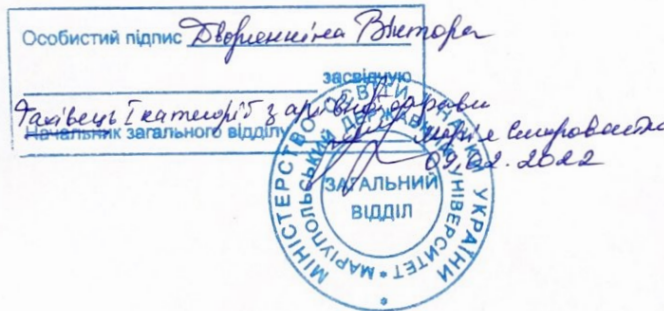 Особистий підпис Дворянкіна Віктора
засвідчую
Фахівець І категорії з архівної справи
Начальник загального відділу
Марія
09.02.2022
МІНІСТЕРСТВО ОСВІТИ І НАУКИ УКРАЇНИ
МАРІУПОЛЬСЬКИЙ ДЕРЖАВНИЙ УНІВЕРСИТЕТ
ЗАГАЛЬНИЙ
ВІДДІЛ